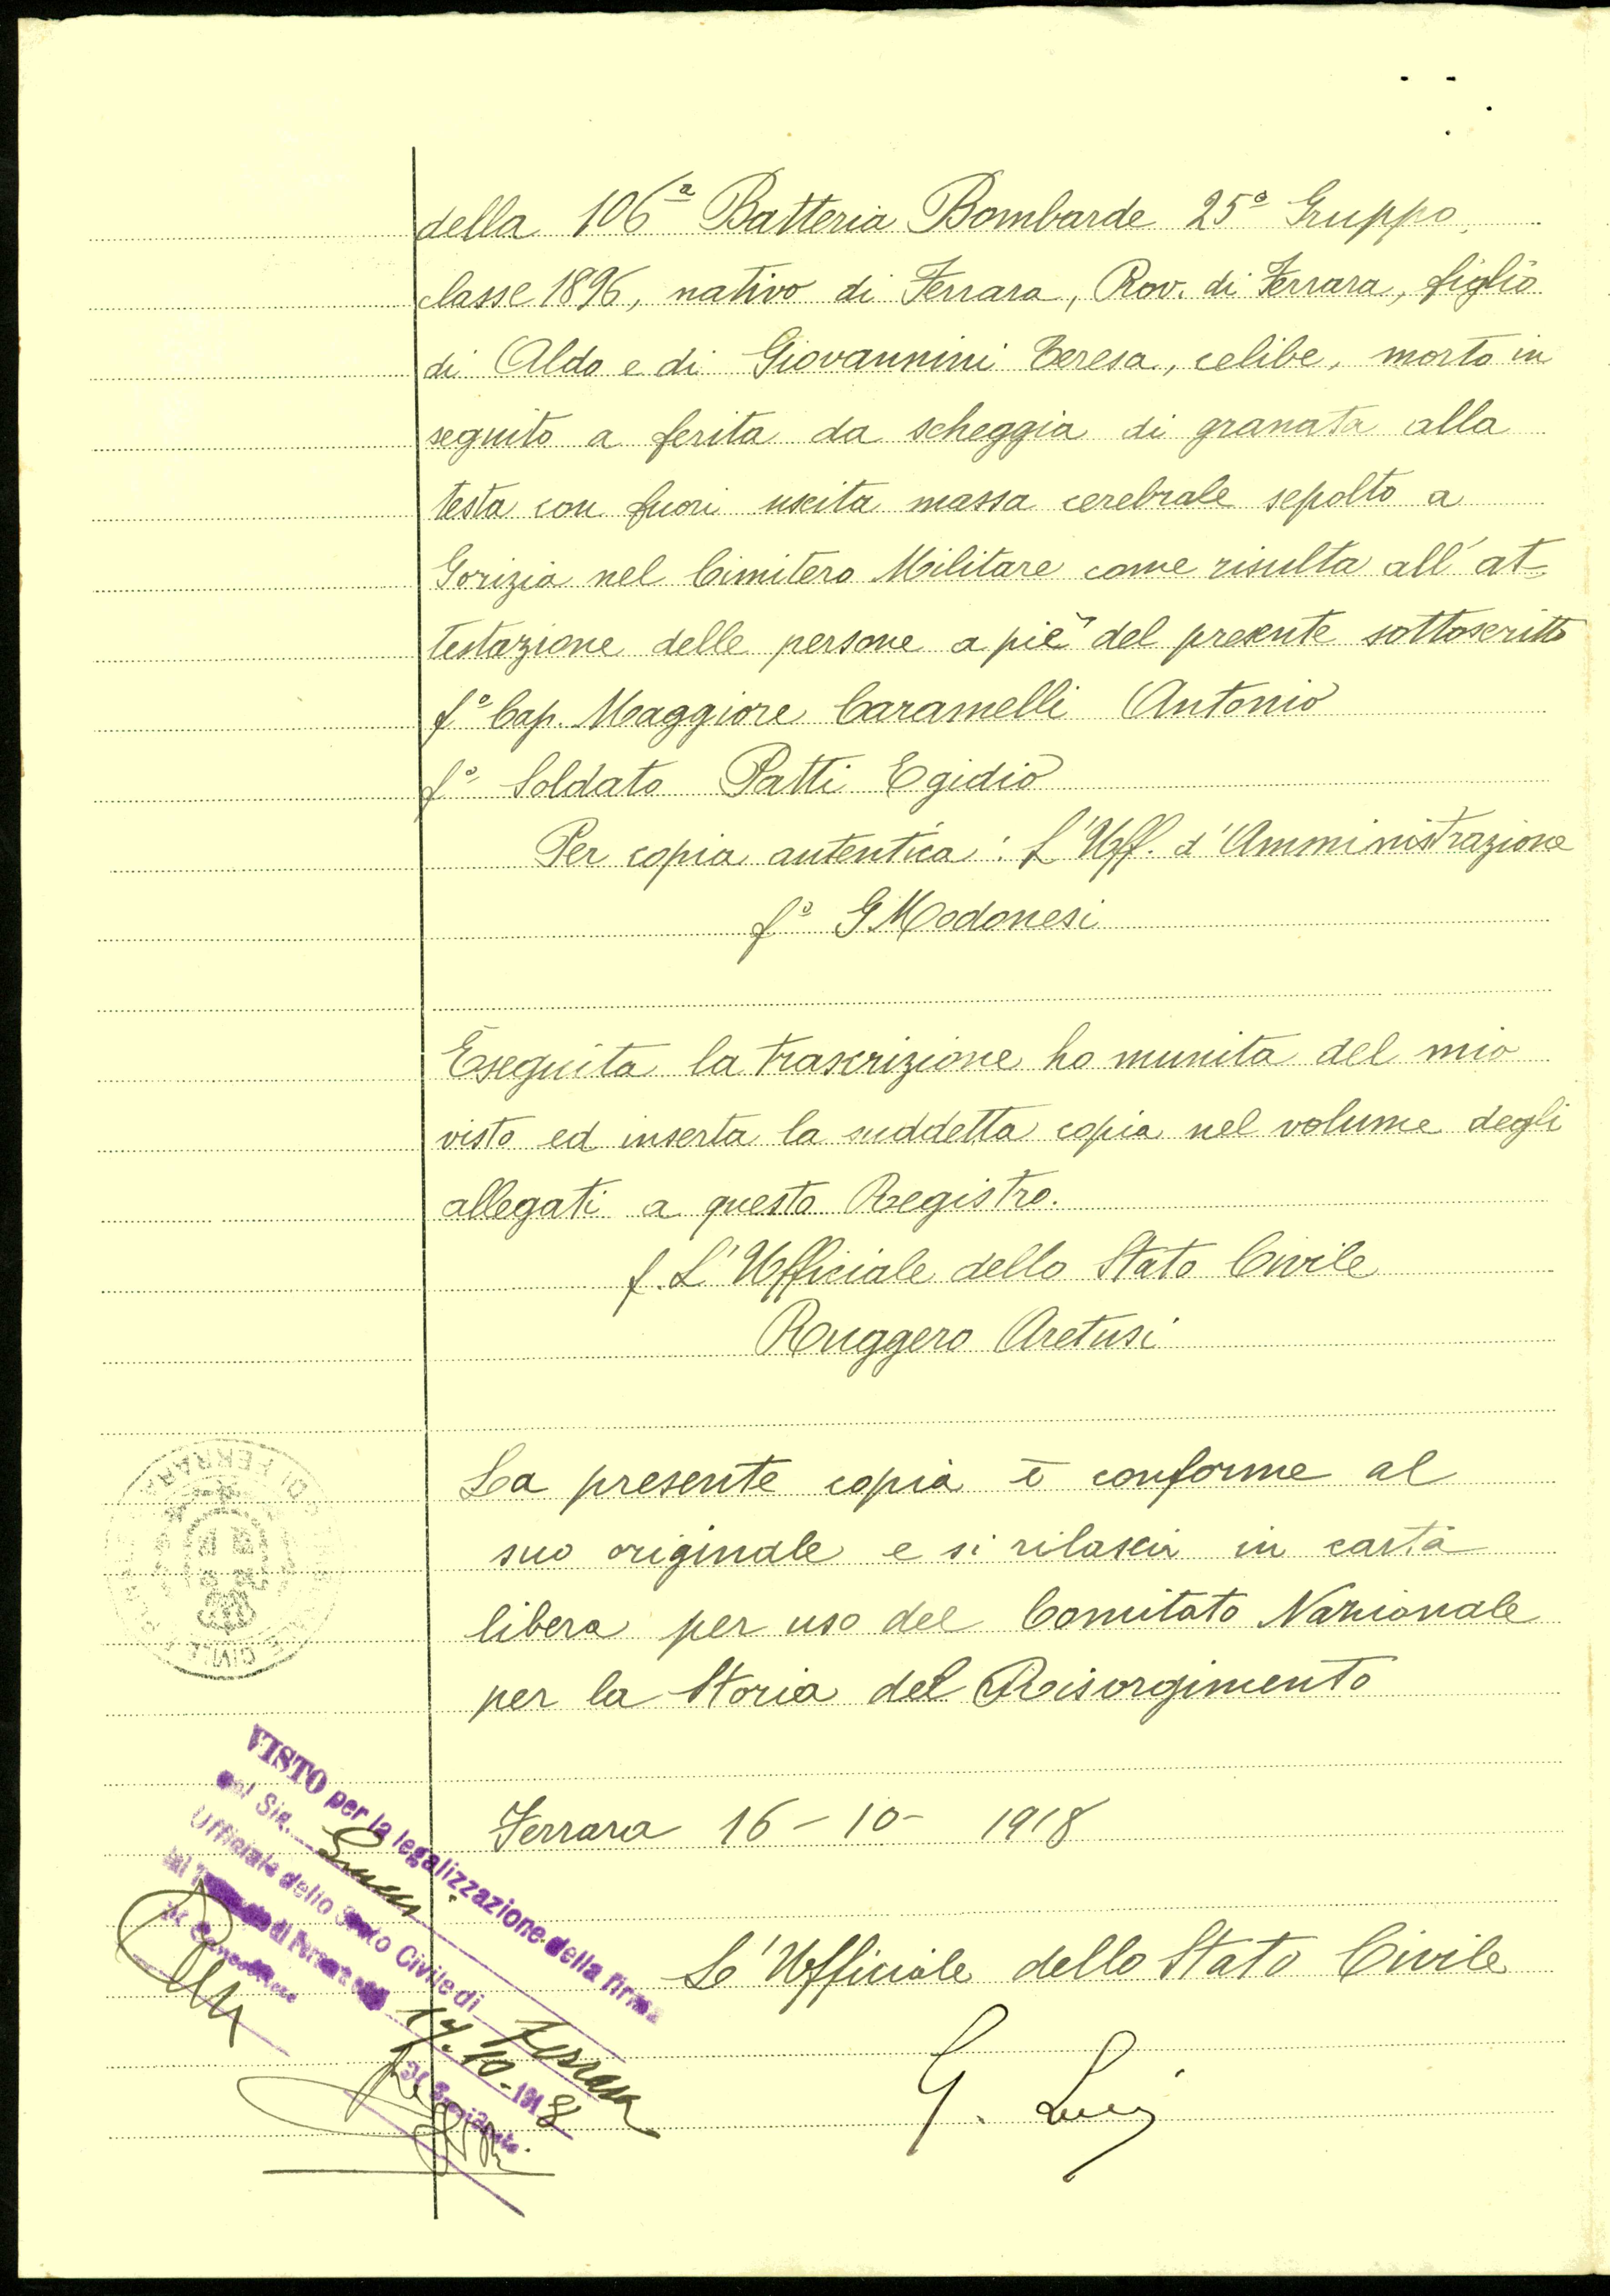 della 106ª Batteria Bombarde 25º Gruppo,
classe 1896, nativo di Ferrara, Prov. di Ferrara, figlio
di Aldo e di Giovannini Teresa, celibe, morto in
seguito a ferita da scheggia di granata alla
testa con fuori uscita massa cerebrale sepolto a
Gorizia nel Cimitero Militare come risulta all'at-
testazione delle persone a piè del presente sottoscritto
fº Cap. Maggiore Caramelli Antonio
fº Soldato Patti Egidio
Per copia autentica: L'Uff. d'Amministrazione
fº G Modonesi
Eseguita la trascrizione ho munita del mio
visto ed inserta la suddetta copia nel volume degli
allegati a questo Registro.
f. L'Ufficiale dello Stato Civile
Ruggero Aretusi
La presente copia è conforme al
suo originale e si rilascia in carta
libera per uso del Comitato Nazionale
per la Storia del Risorgimento
Ferrara 16-10-1918
L'Ufficiale dello Stato Civile
G.
DI FERRARA
CIVILE
VISTO per la legalizzazione della firma
del Sig.
Ufficiale dello Stato Civile di Ferrara
17.10.1918